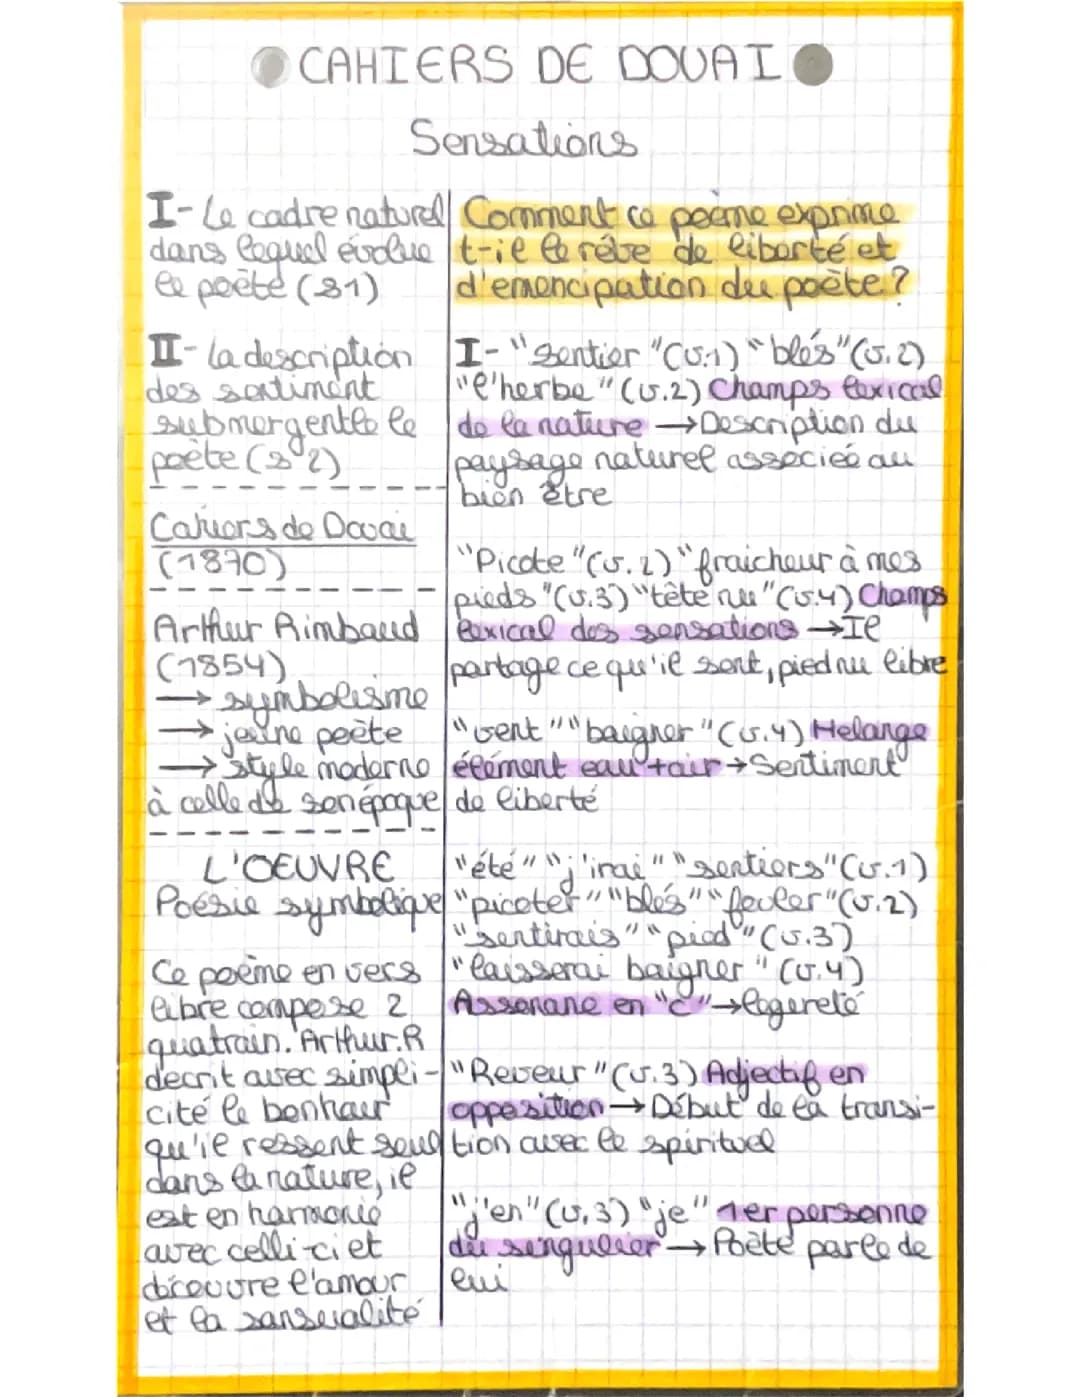 CAHIERS DE DOUAI
Sensations
I- Le cadre naturel
dans lequel évolue
le poète (S1)
II- La description
des sentiment
submergentle le
poète (S°2)
Cahiers de Douai
(1870)
Arthur Rimbaud
(1854)
→ symbolisme
→ jeune poète
→ style moderne
à celle de son époque
L'OEUVRE
Poésie symbolique
Ce poème en vers
libre compose 2
quatrain. Arthur.R
decrit avec simpli-
cité le bonheur
qu'il ressent seul
dans la nature, il
est en harmonie
avec celli-ci et
découvre l'amour
et la sansualité
Comment ce poème exprime
t-il le rêve de liberté et
d'emencipation du poète?
I- "sentier" (v.1) "blés" (v.2)
"l'herbe" (v.2) Champs lexical
de la nature → Description du
paysage naturel associée au
bien être
"Picote" (v.2) "fraicheur à mes
pieds" (v.3) "tête nu" (v.4) Champs
lexical des sensations → Il
partage ce qu'il sent, pied nu libre
"vent" "baigner" (v.4) Melange
élément eau + air → Sentiment
de liberté
"été" "j'irai" "sentiers" (v.1)
"picoter" "blés" "fouler" (v.2)
"sentirais" "pied" (v.3)
"laisserai baigner" (v.4)
Assonane en "é" → légereté
"Reveur" (v.3) Adjectif en
opposition → Début de la transi-
tion avec le spirituel
"j'en" (v.3) "je" 1er personne
du singulier → Poète parle de
lui